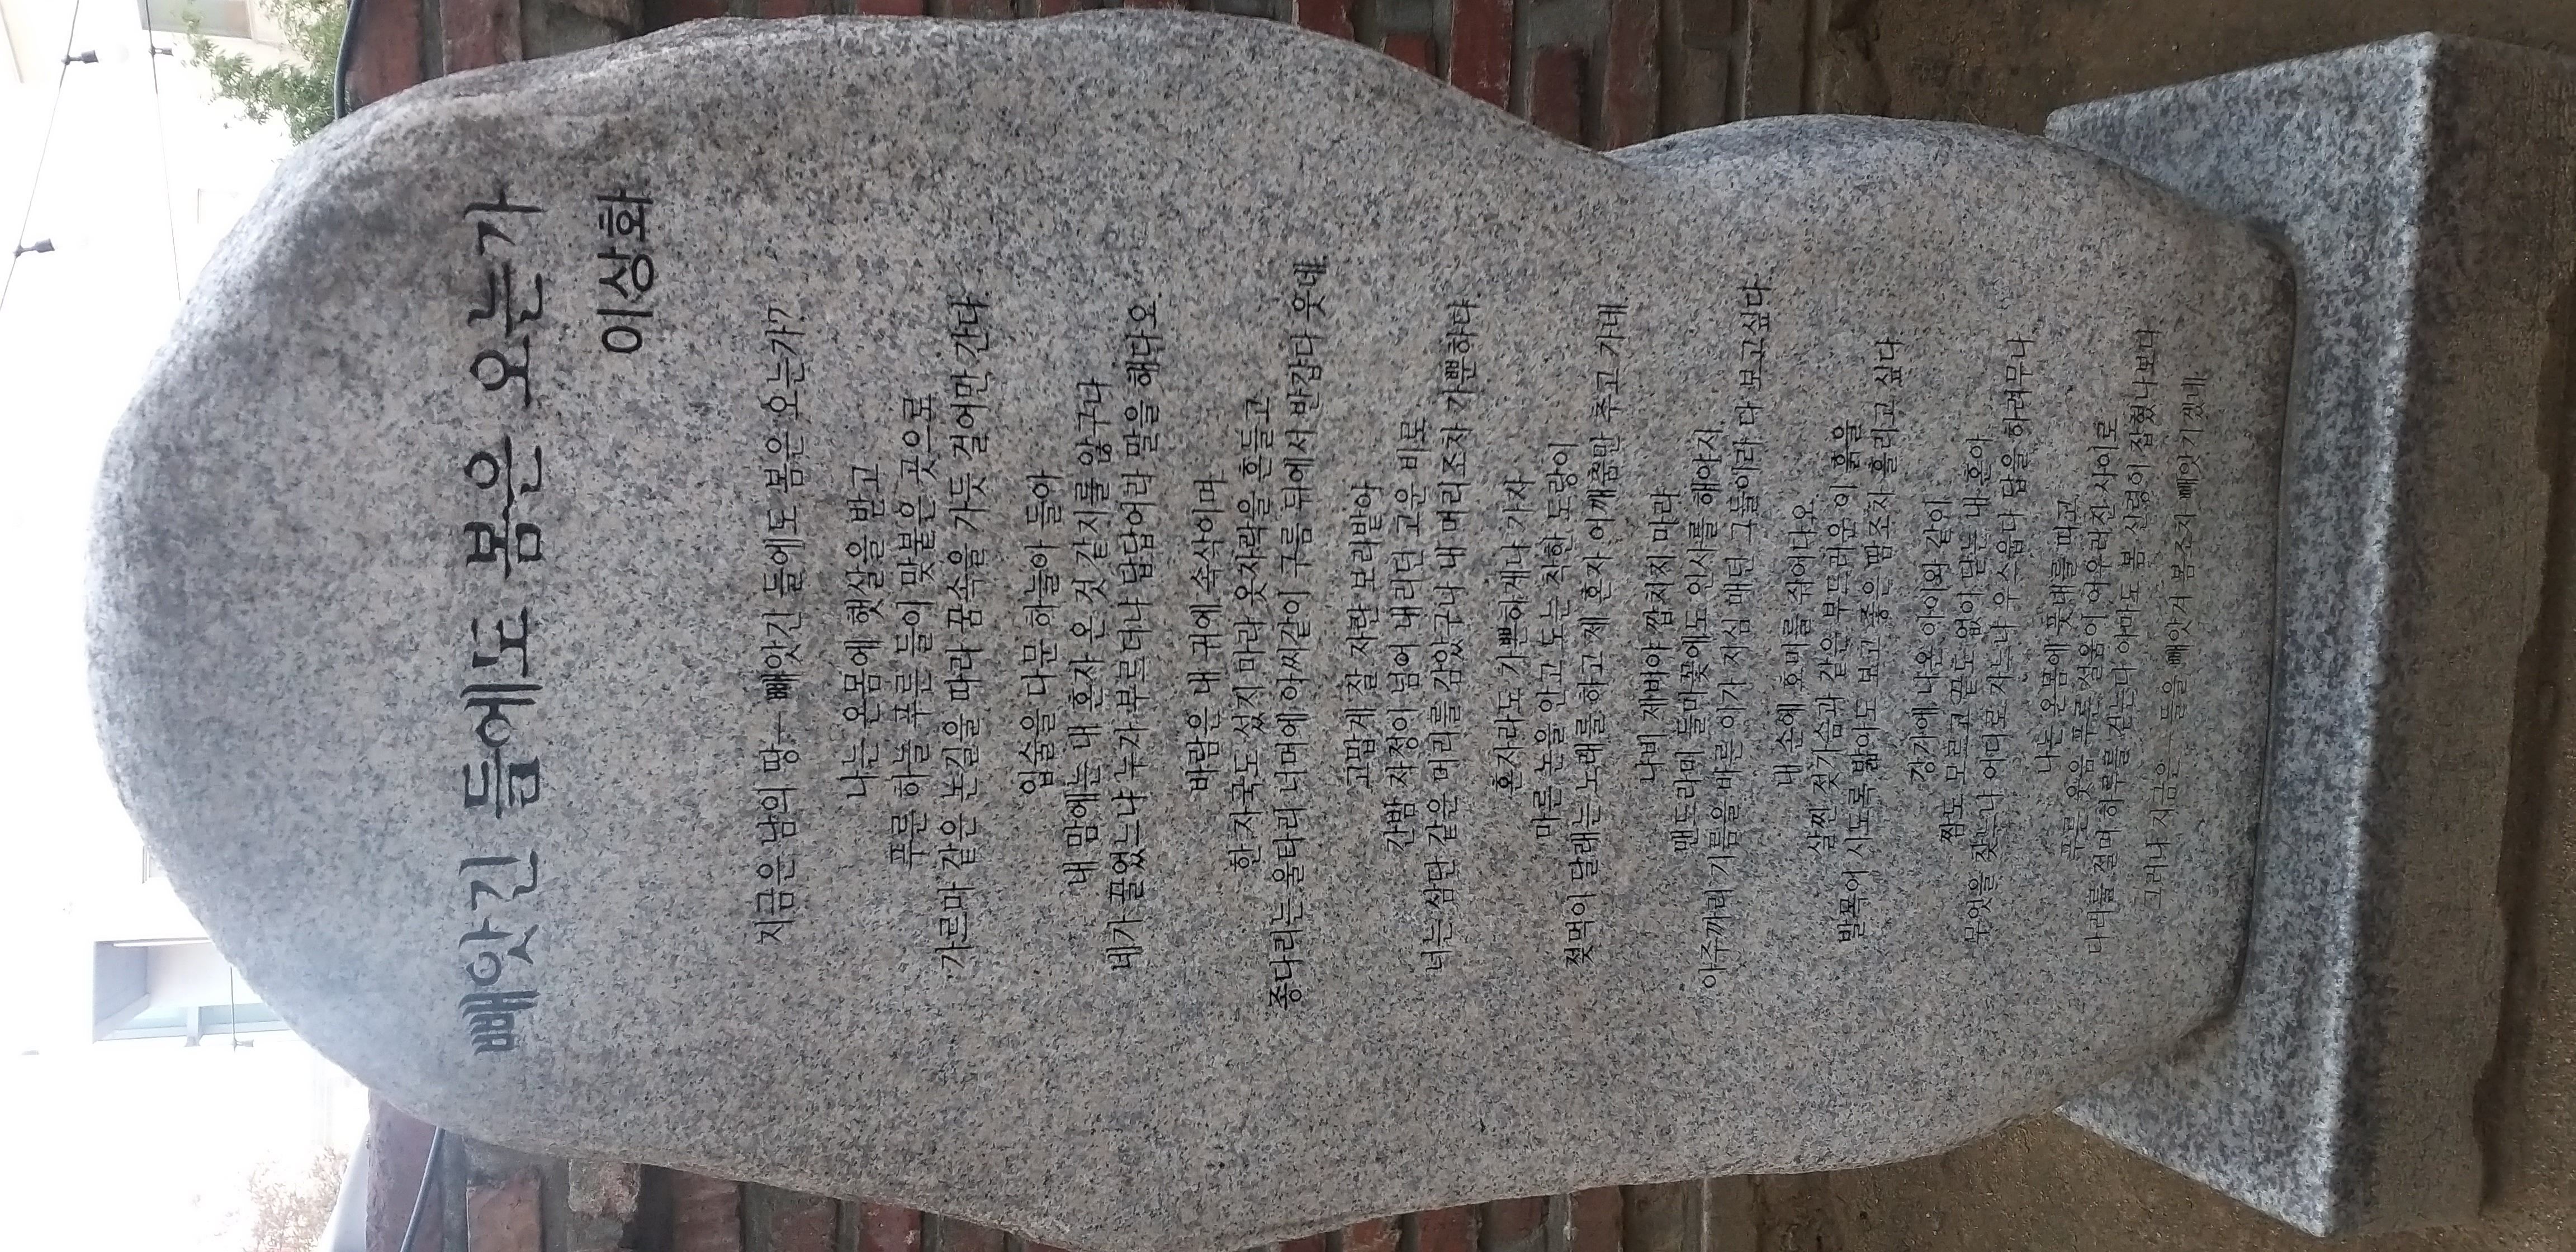 빼앗긴 들에도 봄은 오는가
이상화
지금은 남의 땅— 빼앗긴 들에도 봄은 오는가?
나는 온몸에 햇살을 받고
푸른 하늘 푸른 들이 맞붙은 곳으로
가르마 같은 논길을 따라 꿈속을 가듯 걸어만 간다
입술을 다문 하늘아 들아
내 맘에는 내 혼자 온 것 같지를 않구나
네가 끌었느냐 누가 부르더냐 답답어라 말을 해다오
바람은 내 귀에 속삭이며
한 자국도 섰지 마라 옷자락을 흔들고
종다리는 울타리 너머에 아씨같이 구름 뒤에서 반갑다 웃네
고맙게 잘 자란 보리밭아
간밤 자정이 넘어 내리던 고운 비로
너는 삼단 같은 머리를 감았구나 내 머리조차 가뿐하다
혼자라도 기쁜하게나 가자
마른 논을 안고 도는 착한 도랑이
젖먹이 달래는 노래를 하고 제 혼자 어깨춤만 추고 가네
나비 제비야 깝치지 마라
맨드라미 들마꽃에도 인사를 해야지
아주까리 기름을 바른 이가 지심 매던 그들이라 다 보고 싶다
내 손에 호미를 쥐어다오
살찐 젖가슴과 같은 부드러운 이 흙을
발목이 시도록 밟아도 보고 좋은 땀조차 흘리고 싶다
강가에 나온 아이와 같이
짬도 모르고 끝도 없이 닫는 내 혼아
무엇을 찾느냐 어디로 가느냐 우스웁다 답을 하려무나
나는 온몸에 풋내를 띠고
푸른 웃음 푸른 설움이 어우러진 사이로
다리를 절며 하루를 걷는다 아마도 봄 신령이 잡혔나보다
그러나 지금은— 들을 빼앗겨 봄조차 빼앗기겠네